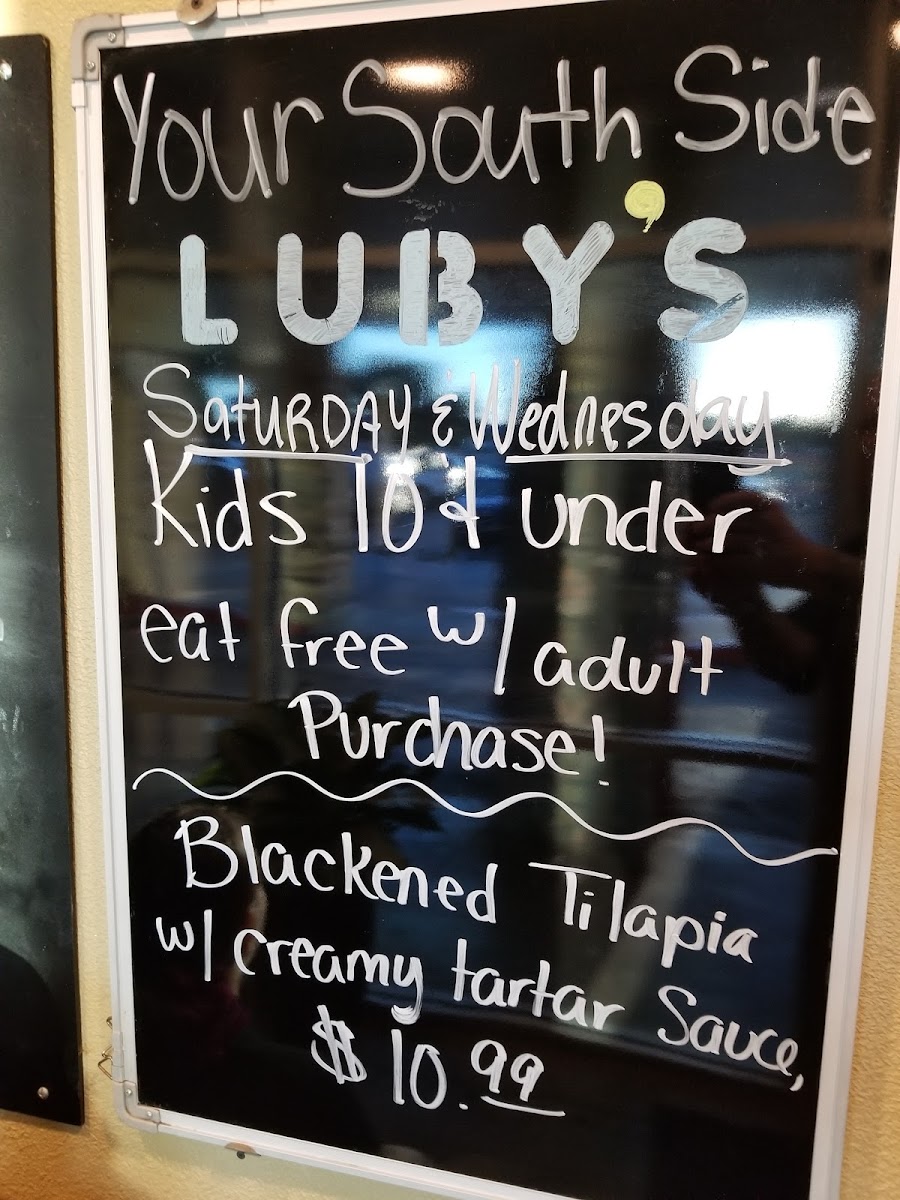 Your South Side
LUBY'S
SATURDAY & Wednesday
Kids 10 & under
eat free w/ adult
Purchase!
Blackened Tilapia
w/ creamy tartar Sauce,
$10.99